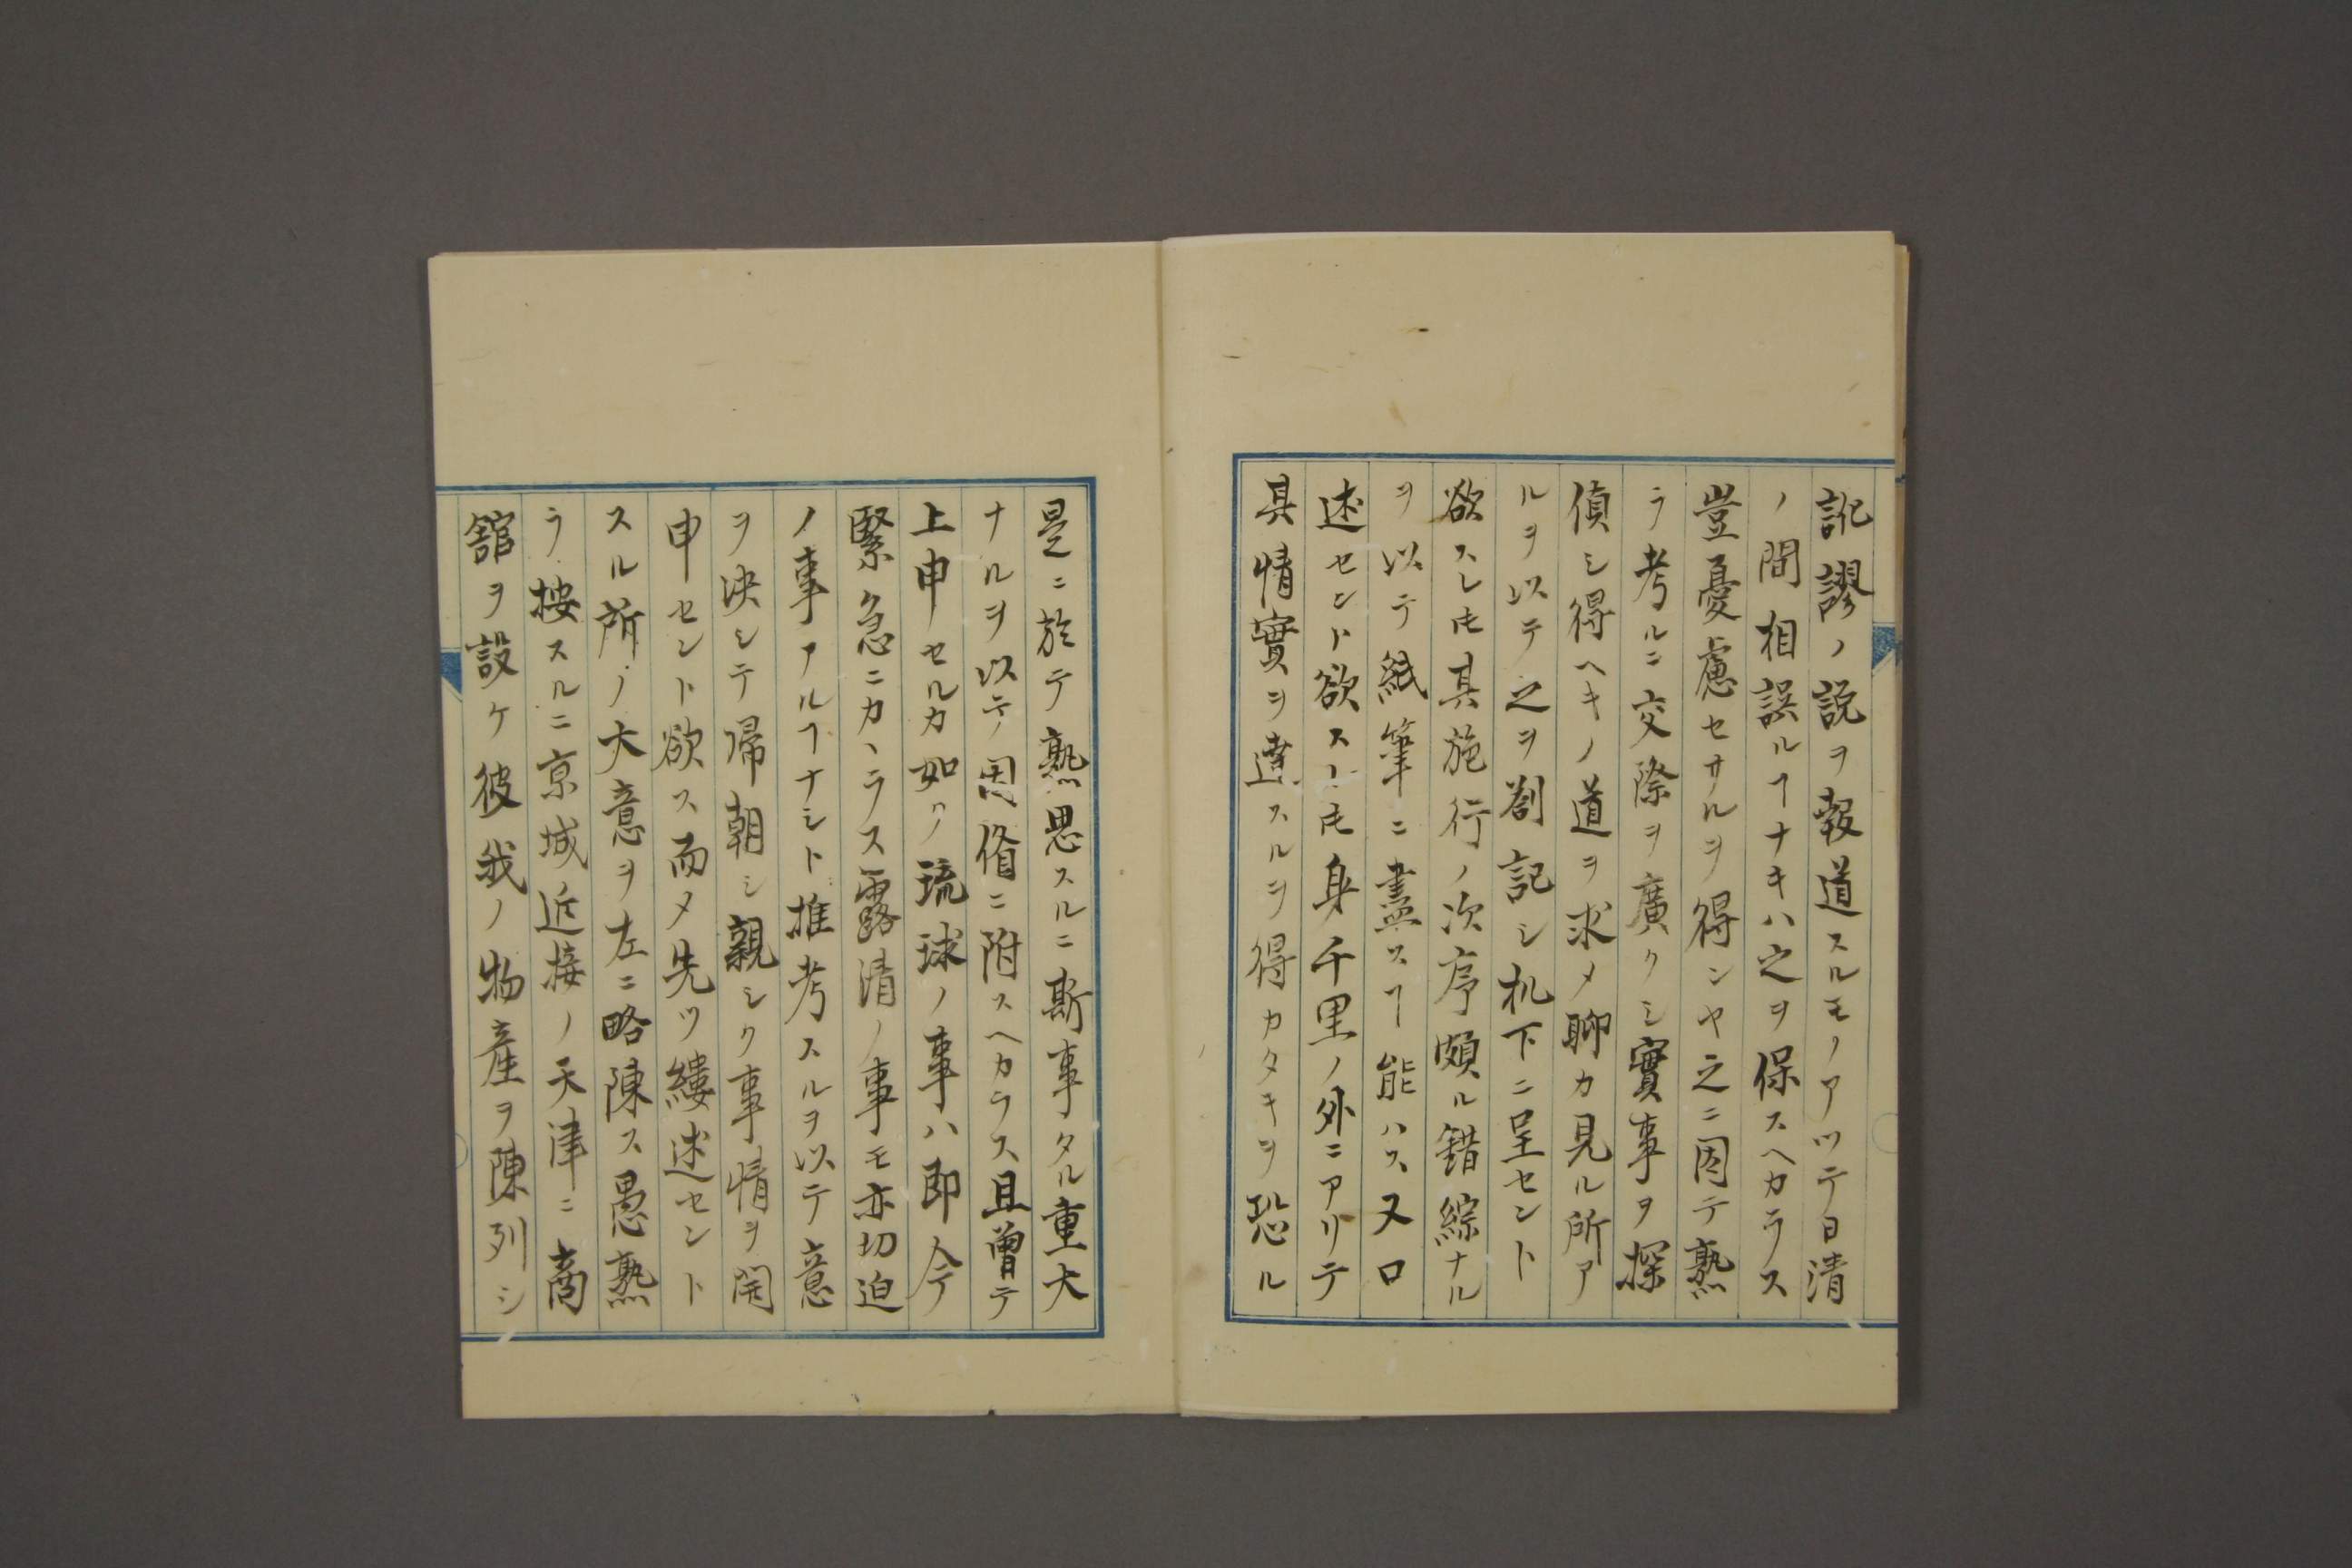 訛謬ノ説ヲ報道スルモノアツテ日清
ノ間相誤ルヿナキハ之ヲ保スヘカラス
豈憂慮セサルヲ得ンヤ之ニ因テ熟
ラ考ルニ交際ヲ廣クシ實事ヲ探
偵シ得ヘキノ道ヲ求メ聊カ見ル所ア
ルヲ以テ之ヲ劄記シ机下ニ呈セント
欲スレ𪜈其施行ノ次序頗ル錯綜ナル
ヲ以テ紙筆ニ盡スヿ能ハス又口
述セント欲スト𪜈身千里ノ外ニアリテ
其情實ヲ達スルヲ得カタキヲ恐ル
是ニ於テ熟思スルニ斯事タル重大
ナルヲ以テ因循ニ附スヘカラス且曽テ
上申セルカ如ク琉球ノ事ハ即今
緊急ニカヽラス露清ノ事モ亦切迫
ノ事アルヿナシト推考スルヲ以テ意
ヲ決シテ帰朝シ親シク事情ヲ開
申セント欲ス而メ先ツ縷述セント
スル所ノ大意ヲ左ニ略陳ス愚熟
ラ按スルニ京城近接ノ天津ニ商
館ヲ設ケ彼我ノ物産ヲ陳列シ